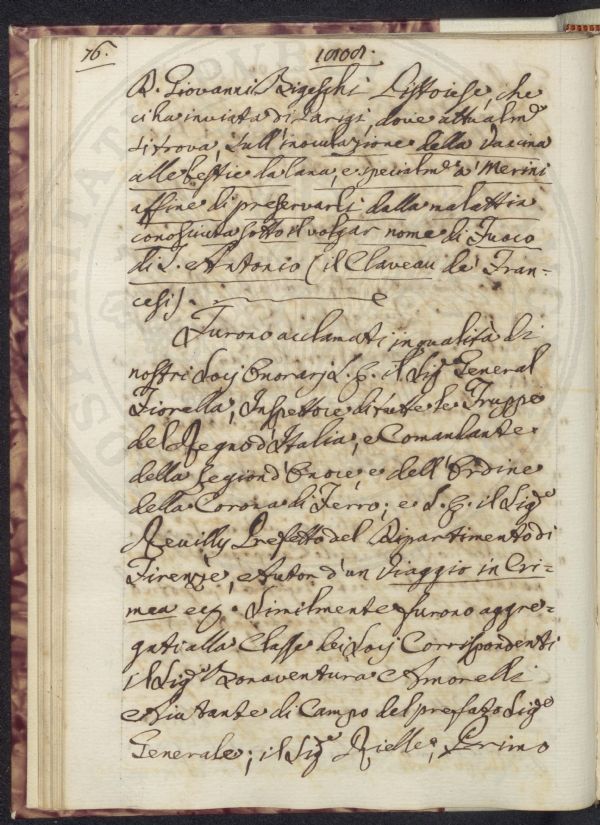 76. 1808.
D. Giovanni Bigeschi Pistoiese, che
ci ha inviata di Parigi, dove attualm.e
si trova, sull'inoculazione della vaccina
alle bestie da lana, e specialm.e a' Merini
affine di preservarli dalla malattia
conosciuta sotto il volgar nome di Fuoco
di S. Antonio (il Claveau de' Fran-
cesi).
Furono acclamati in qualità di
nostri Socj Onorarj S. E. il Sig.r General
Fiorella, Inspettore di tutte le Truppe
del Regno d'Italia, e Comandante
della Legion d'Onore, e dell'Ordine
della Corona di Ferro; e S. E. il Sig.re
Reuilly Prefetto del Dipartimento di
Firenze, Autor d'un Viaggio in Cri-
mea ec. Similmente furono aggre-
gati alla Classe dei Socj Corrispondenti
il Sig.r Bonaventura Amorelli
Aiutante di Campo del prefato Sig.re
Generale; il Sig.r Rielle, Primo